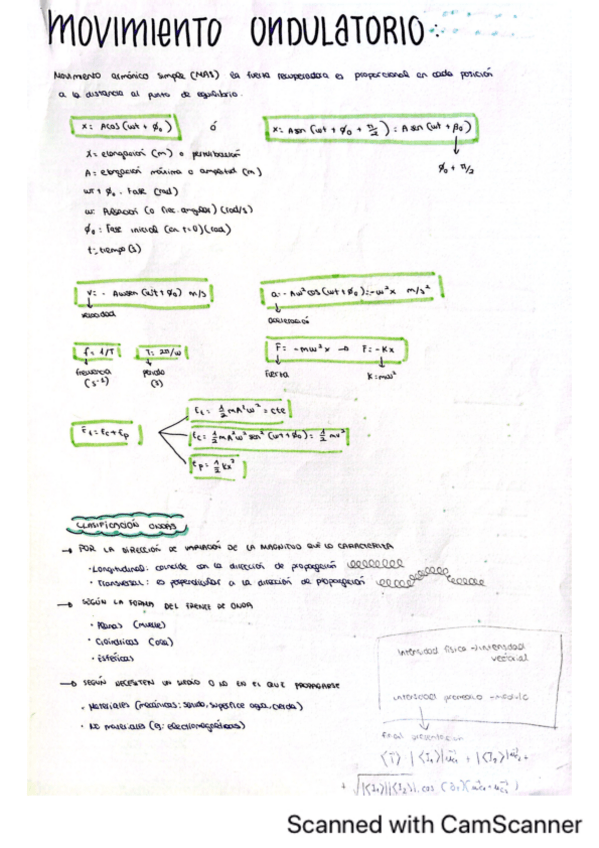 MOVIMIENTO ONDULATORIO
Movimiento armónico simple (MAS) la fuerza recuperadora es proporcional en cada posición
a la distancia al punto de equilibrio.
x = A cos (ωt + φ₀) ó x = A sen (ωt + φ₀ + π/2) = A sen (ωt + β₀)
φ₀ + π/2
x = elongación (m) o perturbación
A = elongación máxima o amplitud (m)
ωt + φ₀ : Fase (rad)
ω: Pulsación (o frec. angular) (rad/s)
φ₀ : Fase inicial (en t=0) (rad)
t: tiempo (s)
v = - Aω sen (ωt + φ₀) m/s a = - Aω² cos (ωt + φ₀) = -ω²x m/s²
velocidad aceleración
f = 1/T T = 2π/ω F = -mω²x → F = -Kx
frecuencia (s⁻¹) periodo (s) Fuerza K = mω²
Et = 1/2 mA²ω² = cte
Et = Ec + Ep Ec = 1/2 mA²ω² sen² (ωt + φ₀) = 1/2 mv²
Ep = 1/2 kx²
CLASIFICACIÓN ONDAS
→ POR LA DIRECCIÓN DE VARIACIÓN DE LA MAGNITUD QUE LO CARACTERIZA
· Longitudinal: coincide con la dirección de propagación
· Transversal: es perpendicular a la dirección de propagación
→ SEGÚN LA FORMA DEL FRENTE DE ONDA
· Planas (muelle)
· Cilíndricas (ola)
· Esféricas
→ SEGÚN NECESITEN UN MEDIO O NO EN EL QUE PROPAGARSE
· Materiales (mecánicas: sonido, superficie agua, cuerda)
· No materiales (ej: electromagnéticas)
intensidad física → intensidad
vectorial
intensidad promedio → módulo
Scanned with CamScanner